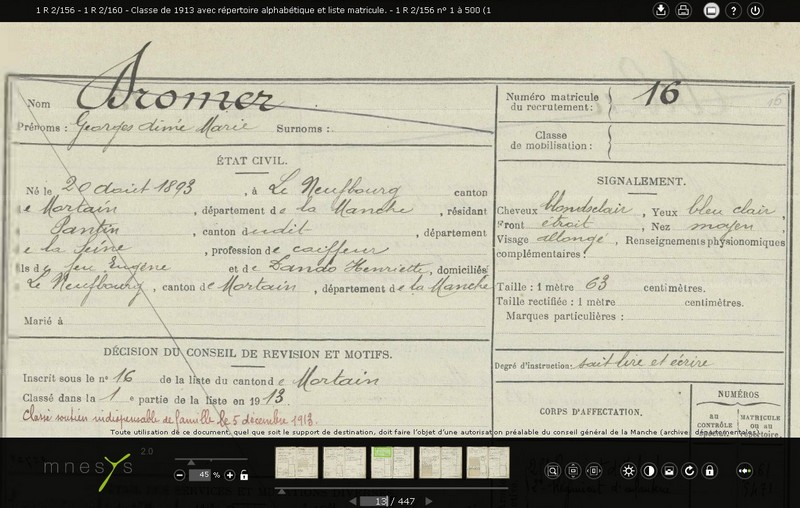 1 R 2/156 - 1 R 2/160 - Classe de 1913 avec répertoire alphabétique et liste matricule. - 1 R 2/156 n° 1 à 500 (1
Nom Aromer
Prénoms : Georges Marie Surnoms :
Numéro matricule du recrutement : 16
Classe de mobilisation :
ÉTAT CIVIL.
Né le 20 août 1893, à Le Neufbourg canton
e Mortain, département de la Manche, résidant
Pantin, canton dudit, département
e la Seine, profession de coiffeur
ls d feu Eugène et de Dando Henriette, domiciliés
Le Neufbourg, canton de Mortain, département de la Manche
Marié à
SIGNALEMENT.
Cheveux blonds clair, Yeux bleu clair,
Front étroit, Nez moyen,
Visage allongé, Renseignements physionomiques
complémentaires :
Taille : 1 mètre 63 centimètres.
Taille rectifiée : 1 mètre centimètres.
Marques particulières :
DÉCISION DU CONSEIL DE REVISION ET MOTIFS.
Inscrit sous le n° 16 de la liste du canton de Mortain
Classé dans la 1 e partie de la liste en 1913.
Classé soutien indispensable de famille le 5 décembre 1913.
Degré d'instruction : sait lire et écrire
CORPS D'AFFECTATION.
NUMÉROS
au contrôle
matricule ou au répertoire.
Toute utilisation de ce document, quel que soit le support de destination, doit faire l'objet d'une autorisation préalable du conseil général de la Manche (archives départementales)
mnesys 2.0
45 %
13 / 447